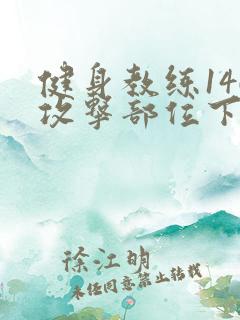 健身教练14
攻擊部位下
徐江明
未经同意禁止转载